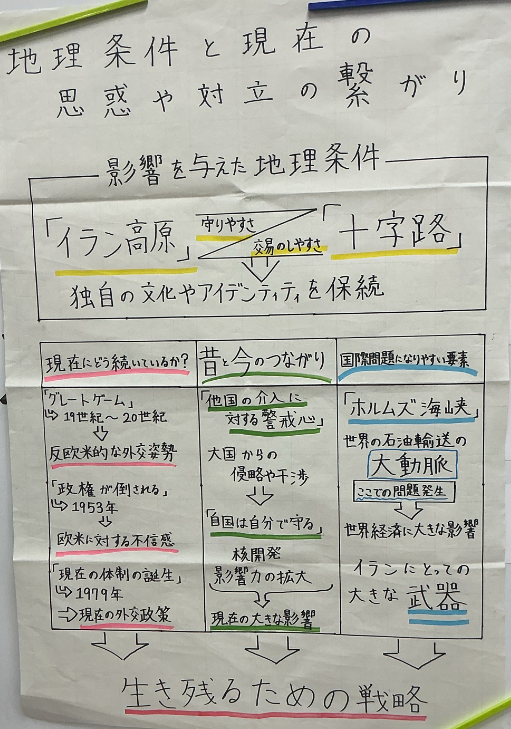 地理条件と現在の
思惑や対立の繋がり
影響を与えた地理条件
「イラン高原」
守りやすさ
交易のしやすさ
「十字路」
独自の文化やアイデンティティを保続
現在にどう続いているか?
「グレートゲーム」
↳19世紀〜20世紀
反欧米的な外交姿勢
「政権が倒される」
↳1953年
欧米に対する不信感
「現在の体制の誕生」
↳1979年
→現在の外交政策
昔と今のつながり
「他国の介入に
対する警戒心」
大国からの
侵略や干渉
「自国は自分で守る」
核開発
影響力の拡大
現在の大きな影響
国際問題になりやすい要素
「ホルムズ海峡」
世界の石油輸送の
大動脈
ここでの問題発生
世界経済に大きな影響
イランにとっての
大きな武器
生き残るための戦略